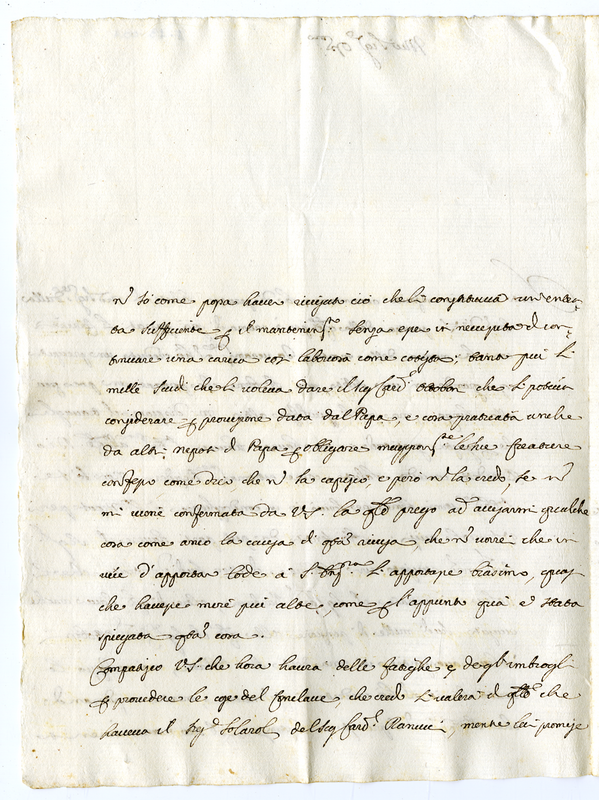 nō sò come possa haver ricusato ciò che li constituiva un'entra-
ta sufficiente p il mantenim.to senza esser in necessità di con-
tinuare una carica così laboriosa come cotesta; tanto più li
mille scudi che li voleva dare il Sig.r Card.l che si potevan
considerare p provisione data dal Papa, e cosa praticata anche
da altri nepoti di Papa p obligare maggiorm.te le sue creature
confesso come dico che nō la capisco, e però nō la credo, se nō
mi viene confermata da VS. la q.le prego ad avisarmi qualche
cosa come anco la causa di q.sta ricusa, che nō vorrei che in
vece d'apportar lode a S. li apportasse biasimo, quasi
che havesse mire più alte, come p l'appunto quà è stata
spiegata q.sta cosa.
Compatisco VS. che hora haurà delle fatighe e degl'imbrogli
p provedere le cose del Conclave, che credo li valerà di q.to che
haveva il Sig.r Solaroli del Sig.r Card.l Ranucci, mentre lei promise